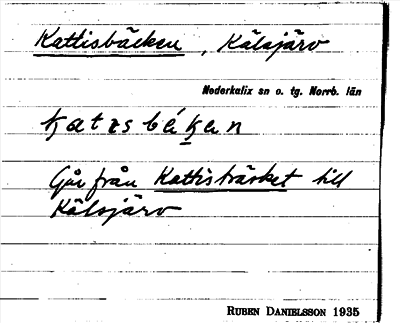 Kattisbäcken, Kälsjärv
Nederkalix sn o. tg. Norrb. län
Går från Kattisträsket till
Kälsjärv
RUBEN DANIELSSON 1935